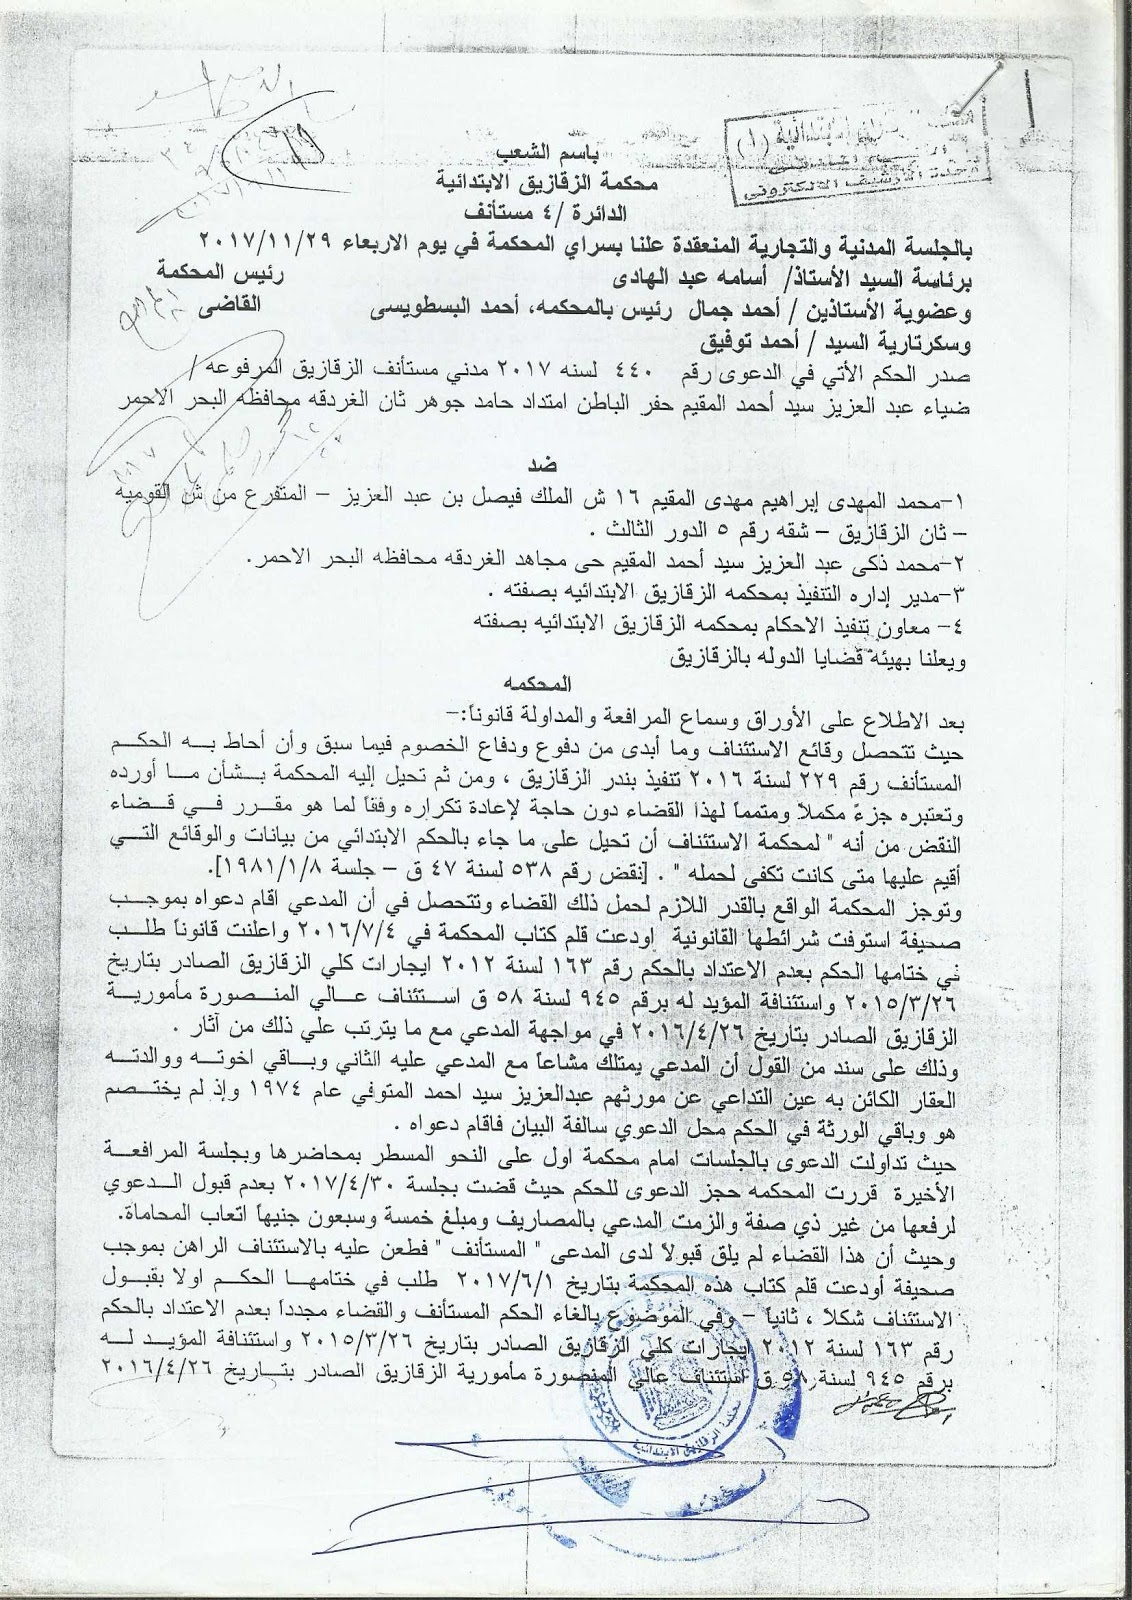 باسم الشعب
محكمة الزقازيق الابتدائية
الدائرة /٤ مستأنف
بالجلسة المدنية والتجارية المنعقدة علنا بسراي المحكمة في يوم الاربعاء ٢٠١٧/١١/٢٩
برئاسة السيد الأستاذ/ أسامه عبد الهادى رئيس المحكمة
وعضوية الأستاذين / أحمد جمال رئيس بالمحكمه، أحمد البسطويسى القاضى
وسكرتارية السيد / أحمد توفيق
صدر الحكم الأتي في الدعوى رقم ٤٤٠ لسنه ٢٠١٧ مدني مستأنف الزقازيق المرفوعه /
ضياء عبد العزيز سيد أحمد المقيم حفر الباطن امتداد حامد جوهر ثان الغردقه محافظه البحر الاحمر
ضد
١-محمد المهدى إبراهيم مهدى المقيم ١٦ ش الملك فيصل بن عبد العزيز – المتفرع من ش القوميه
– ثان الزقازيق – شقه رقم ٥ الدور الثالث .
٢-محمد ذكى عبد العزيز سيد أحمد المقيم حى مجاهد الغردقه محافظه البحر الاحمر.
٣-مدير إداره التنفيذ بمحكمه الزقازيق الابتدائيه بصفته .
٤- معاون تنفيذ الاحكام بمحكمه الزقازيق الابتدائيه بصفته
ويعلنا بهيئه قضايا الدوله بالزقازيق
المحكمه
بعد الاطلاع على الأوراق وسماع المرافعة والمداولة قانوناً:–
حيث تتحصل وقائع الاستئناف وما أبدى من دفوع ودفاع الخصوم فيما سبق وأن أحاط به الحكم
المستأنف رقم ٢٢٩ لسنة ٢٠١٦ تنفيذ بندر الزقازيق ، ومن ثم تحيل إليه المحكمة بشأن ما أورده
وتعتبره جزءً مكملاً ومتمماً لهذا القضاء دون حاجة لإعادة تكراره وفقاً لما هو مقرر في قضاء
النقض من أنه " لمحكمة الاستئناف أن تحيل على ما جاء بالحكم الابتدائي من بيانات والوقائع التي
أقيم عليها متى كانت تكفى لحمله " . [نقض رقم ٥٣٨ لسنة ٤٧ ق – جلسة ١٩٨١/١/٨].
وتوجز المحكمة الواقع بالقدر اللازم لحمل ذلك القضاء وتتحصل في أن المدعي اقام دعواه بموجب
صحيفة استوفت شرائطها القانونية إودعت قلم كتاب المحكمة في ٢٠١٦/٧/٤ واعلنت قانوناً طلب
في ختامها الحكم بعدم الاعتداد بالحكم رقم ١٦٣ لسنة ٢٠١٢ ايجارات كلي الزقازيق الصادر بتاريخ
٢٠١٥/٣/٢٦ واستئنافة المؤيد له برقم ٩٤٥ لسنة ٥٨ ق استئناف عالي المنصورة مأمورية
الزقازيق الصادر بتاريخ ٢٠١٦/٤/٢٦ في مواجهة المدعي مع ما يترتب علي ذلك من آثار .
وذلك على سند من القول أن المدعي يمتلك مشاعاً مع المدعي عليه الثاني وباقي اخوته ووالدته
العقار الكائن به عين التداعي عن مورثهم عبدالعزيز سيد احمد المتوفي عام ١٩٧٤ وإذ لم يختصم
هو وباقي الورثة في الحكم محل الدعوي سالفة البيان فاقام دعواه .
حيث تداولت الدعوى بالجلسات امام محكمة اول على النحو المسطر بمحاضرها وبجلسة المرافعة
الأخيرة قررت المحكمه حجز الدعوى للحكم حيث قضت بجلسة ٢٠١٧/٤/٣٠ بعدم قبول الدعوي
لرفعها من غير ذي صفة والزمت المدعي بالمصاريف ومبلغ خمسة وسبعون جنيهاً اتعاب المحاماة.
وحيث أن هذا القضاء لم يلق قبولاً لدى المدعى " المستأنف " فطعن عليه بالاستئناف الراهن بموجب
صحيفة أودعت قلم كتاب هذه المحكمة بتاريخ ٢٠١٧/٦/١ طلب في ختامها الحكم اولا بقبول
الاستئناف شكلا ، ثانياً – وفي الموضوع بالغاء الحكم المستأنف والقضاء مجدداً بعدم الاعتداد بالحكم
رقم ١٦٣ لسنة ٢٠١٢ إيجارات كلي الزقازيق الصادر بتاريخ ٢٠١٥/٣/٢٦ واستئنافة المؤيد له
برقم ٩٤٥ لسنة ٥٨ ق استئناف عالي المنصورة مأمورية الزقازيق الصادر بتاريخ ٢٠١٦/٤/٢٦
محكمة الزقازيق الابتدائية